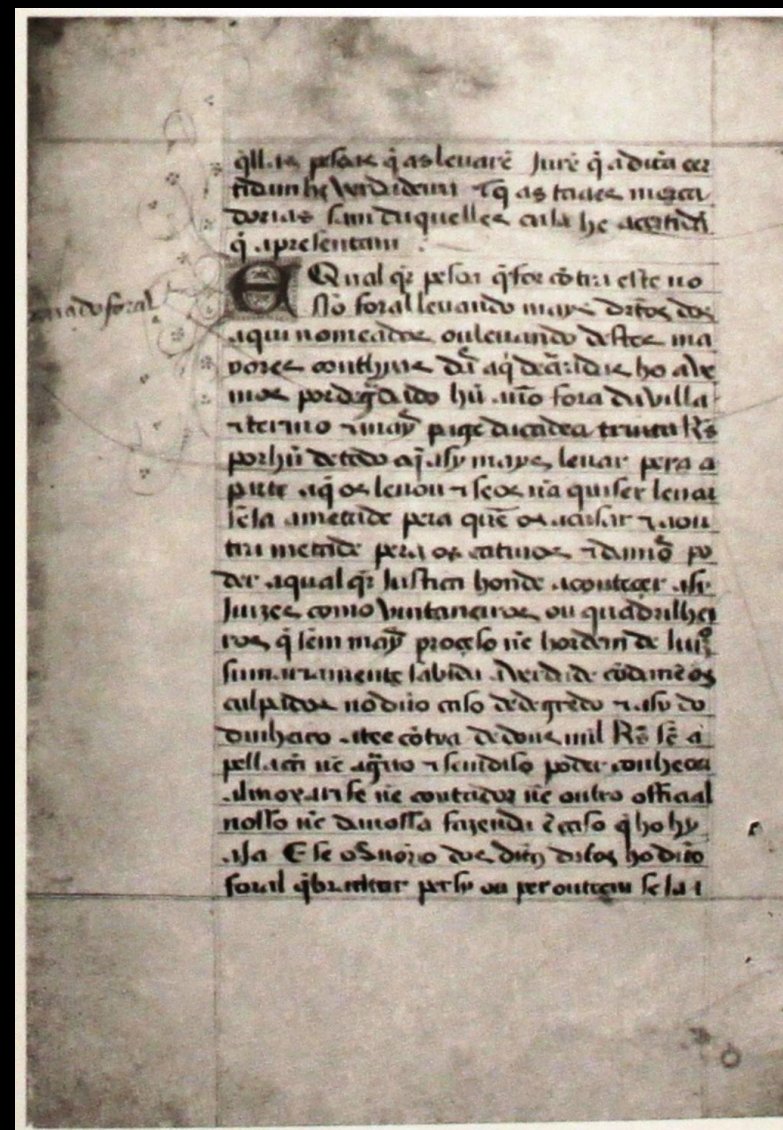 q̃llas pesoas q̃ as leuarẽ Jurẽ q̃ a dita cer
tidam he verdadeira ⁊ q̃ as taaes merca
dorias sam daquelles cuja he a certidã
q̃ apresentam
E Qual qr̃ pesoa q̃ for cõtra este no
pena do foral
sso foral leuando mays drtõs dos
aqui nomeados ou leuando destes ma
yores conthyas
mos por degradado hũ ano fora da villa
⁊ termo ⁊ mays page da cadea trinta Rs̃
por hũ de todo o q̃ asy mays leuar pera a
parte a q̃ os leuou ⁊ se os nã quiser leuar
seja a metade pera quẽ os acusar ⁊ a out
tra metade pera os catiuos ⁊ damos po
der a qual qr̃ Justiça honde acontecer asy
Juizes como vintaneiros ou quadrilhei
ros q̃ sem mays proçeso nẽ hordem de Juizo
sumariamente sabida a verdade cõdãnẽ os
culpados no dito caso de degredo ⁊ asy do
dinheiro atee cõtya de dous mil Rs̃ sẽ a
pellaçã nẽ agrauo ⁊ sem diso poder conheçer
almoxarife nẽ contador nẽ outro official
nosso nẽ da nossa fazenda ẽ caso q̃ ho hy
aja E se o Snõrio dos ditos drtõs ho dito
foral q̃brantar per sy ou per outrem seja